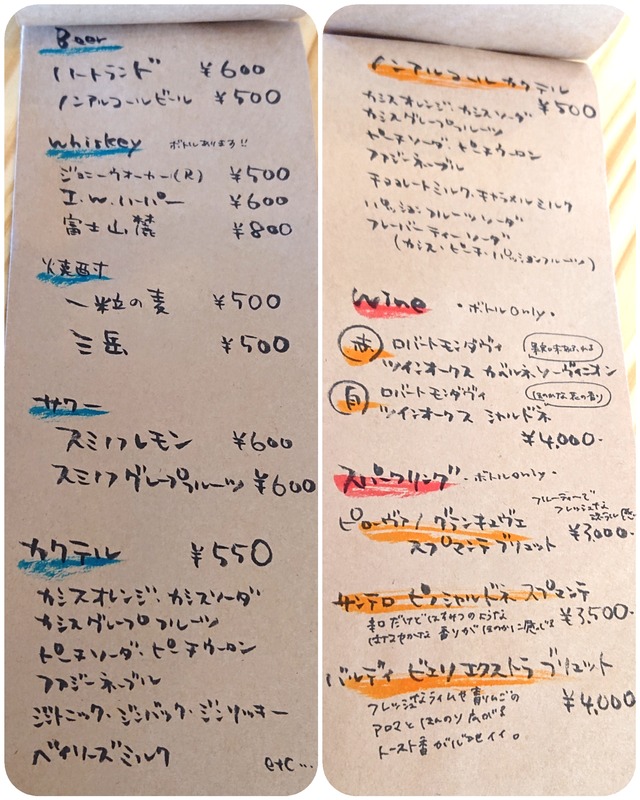 Beer
ハートランド ¥600
ノンアルコールビール ¥500
whiskey ボトルあります!!
ジョニーウォーカー(R) ¥500
I.W.ハーパー ¥600
富士山麓 ¥800
焼酎
一粒の麦 ¥500
三岳 ¥500
サワー
スミノフレモン ¥600
スミノフグレープフルーツ ¥600
カクテル ¥550
カシスオレンジ・カシスソーダ
カシスグレープフルーツ
ピーチソーダ・ピーチウーロン
ファジーネーブル
ジントニック・ジンバック・ジンリッキー
ベイリーズミルク
etc…
ノンアルコールカクテル
¥500
カシスオレンジ・カシスソーダ
カシスグレープフルーツ
ピーチソーダ・ピーチウーロン
ファジーネーブル
チョコレートミルク・キャラメルミルク
パッションフルーツソーダ
フレーバーティーソーダ
(カシス・ピーチ・パッションフルーツ)
wine ・ボトルonly・
赤 ロバートモンダヴィ
ツインオークス カベルネ・ソーヴィニオン
白 ロバートモンダヴィ ほのかな花の香り
ツインオークス シャルドネ
¥4,000-
スパークリング ・ボトルonly・
フルーティーで
フレッシュな
ピローヴァノ グランキュヴェ ¥3,000-
スプマンテブリュット
サンテロ ピノシャルドネ スプマンテ
辛口だけどはちみつのような ¥3,500-
はなやかな香りがほのかに感じる
バルディビエソ エクストラ ブリュット
フレッシュなライムや青りんごの ¥4,000
アロマとほんのり広がる
トースト香がバランスイイ。